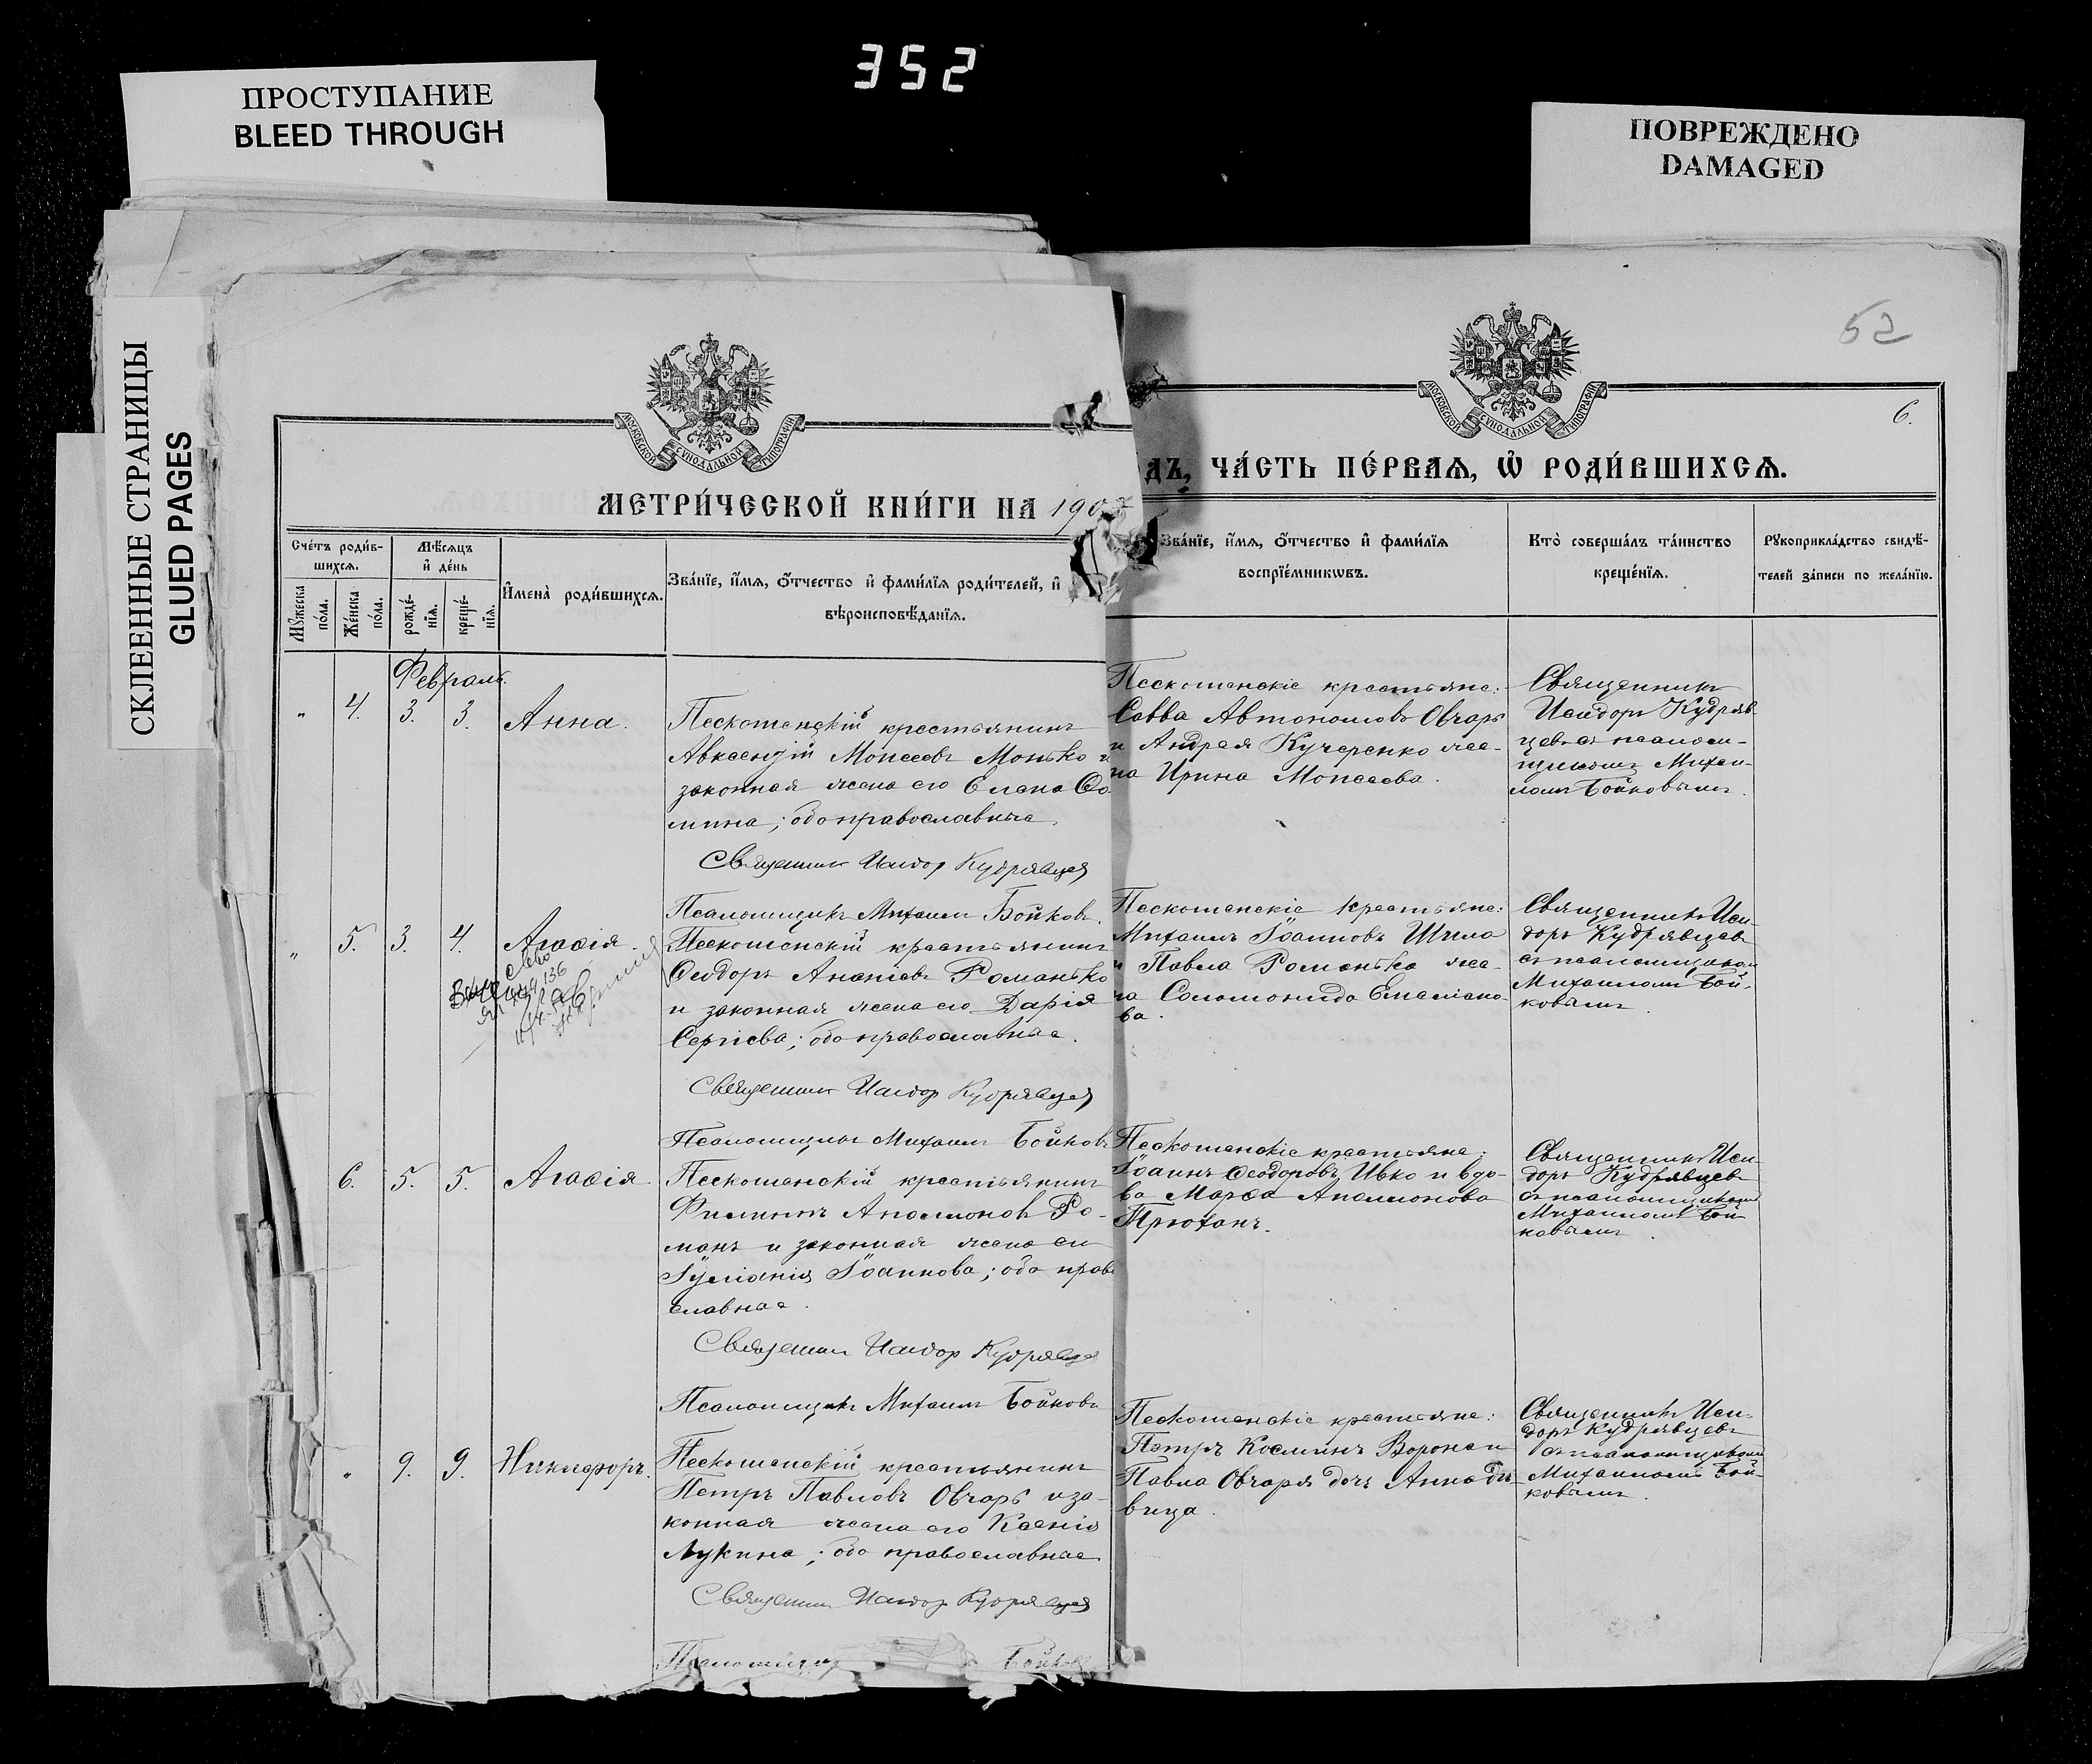 352
ПРОСТУПАНИЕ
BLEED THROUGH
ПОВРЕЖДЕНО
DAMAGED
СКЛЕЕННЫЕ СТРАНИЦЫ
GLUED PAGES
52
6.
МОСКОВСКОЙ СУНОДАЛЬНОЙ ТИПОГРАФІИ
МОСКОВСКОЙ СУНОДАЛЬНОЙ ТИПОГРАФІИ
МЕТРИ́ЧЕСКОЙ КНИ́ГИ НА 190
ДЪ, ЧА́СТЬ ПЕ́РВАѦ, Ѡ҆ РОДИ́ВШИХСѦ.
Сче́тъ роди́в-
шихсѧ.
Мꙋ́жеска
по́ла.
Же́нска
по́ла.
Мѣ́сѧцъ
и҆ де́нь
рожде́-
нїѧ.
креще́-
нїѧ.
И҆мена̀ роди́вшихсѧ.
Зва́нїе, и҆́мѧ, ѻ҆́тчество и҆ фами́лїѧ роди́телей, и҆
вѣроисповѣ́данїѧ.
Зва́нїе, и҆́мѧ, ѻ҆́тчество и҆ фами́лїѧ
воспрїе́мникѡвъ.
Кто̀ соверша́лъ та́инство
креще́нїѧ.
Рꙋкоприкла́дство свидѣ́-
телей за́писи по жела́нїю.
Февраль.
" 4. 3. 3. Анна.
Пескошенскій крестьянинъ
Авксентій Моисеевъ Монько и
законная жена его Елена Ѳо
мина; оба православные.
Священникъ Исидор Кудрявцев
Псаломщикъ Михаил Бойковъ.
Пескошенскіе крестьяне:
Савва Автономовъ Овчарь
и Андрея Кучеренко же-
на Ирина Моисеева.
Священникъ
Исидоръ Кудряв
цевъ съ псаломщ-
щикомъ Михаи-
ломъ Бойковымъ.
" 5. 3. 4. Агаѳія.
Пескошенскій крестьянинъ
Ѳеодоръ Ананіевъ Романько
и законная жена его Дарія
Сергіева; оба православные.
Священник Исидор Кудрявцев
Псаломщикъ Михаилъ Бойковъ
Пескошенскіе крестьяне:
Михаилъ Іоанновъ Шило
и Павла Романька же-
на Соломонида Емелiано-
ва.
Священникъ Иси
доръ Кудрявцевъ
съ псаломщиком
Михаиломъ Бой-
ковымъ.
6. 5. 5. Агаѳія
Пескошенскій крестьянинъ
Филиппъ Аполлоновъ Ро-
манъ и законная жена его
Іуліанія Іоаннова; оба право
славные.
Священник Исидор Кудрявцев
Псаломщикъ Михаилъ Бойковъ
Пескошенскіе крестьяне:
Іоаннъ Ѳеодоровъ Ивко и вдо-
ва Марѳа Аполлонова
Трюханъ.
Священникъ Иси-
доръ Кудрявцевъ
съ псаломщикомъ
Михаиломъ Бой
ковымъ.
" 9. 9. Никифоръ.
Пескошенскій крестьянинъ
Петръ Павловъ Овчарь и за-
конная жена его Ксенія
Лукина; оба православные
Священник Исидор Кудрявцев
Псаломщикъ Бойковъ
Пескошенскіе крестьяне:
Петръ Косминъ Ворона и
Павла Овчаря дочь Анна дѣ-
вица.
Священникъ Иси-
доръ Кудрявцевъ
съ псаломщикомъ
Михаиломъ Бой-
ковымъ.